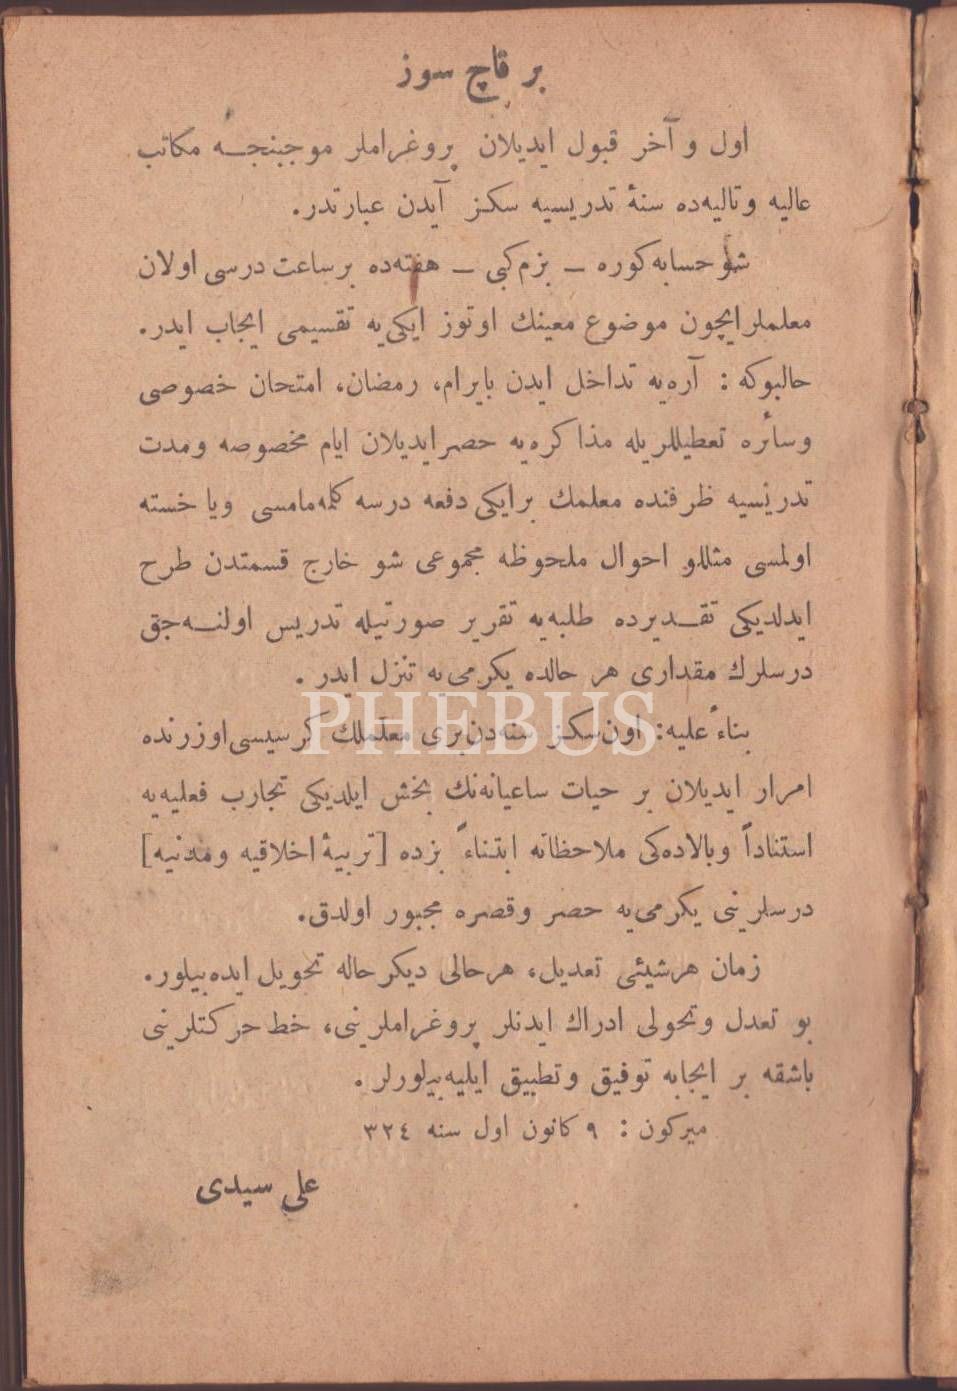 بر قاچ سوز
اول و آخر قبول ایدیلان پروغراملر موجبنجه مکاتب
عالیه وتالیه‌ده سنهٔ تدریسیه سکز آیدن عبارتدر.
شو حسابه کوره ـ بزم کبی ـ هفته‌ده بر ساعت درسی اولان
معلملر ایچون موضوع معینك اوتوز ایکی‌یه تقسیمی ایجاب ایدر.
حالبوکه : آره‌یه تداخل ایدن بایرام، رمضان، امتحان خصوصی
وسائره تعطیللریله مذاکره‌یه حصر ایدیلان ایام مخصوصه ومدت
تدریسیه ظرفنده معلمك بر ایکی دفعه درسه کله‌مامسی ویا خسته
اولمسی مثللو احوال ملحوظه مجموعی شو خارج قسمتدن طرح
ایدلدیکی تقـدیرده طلبه‌یه تقریر صورتیله تدریس اولنـه‌جق
درسلرك مقداری هر حالده یکرمی‌یه تنزل ایدر .
بناءً علیه: اون سکز سنه‌دن بری معلملك کرسیسی اوزرنده
امرار ایدیلان بر حیات ساعیانه‌نك بخش ایلدیکی تجارب فعلیه‌یه
استناداً وبالاده‌کی ملاحظاته ابتناءً بزده [تربیهٔ اخلاقیه ومدنیه]
درسلرینی یکرمی‌یه حصر وقصره مجبور اولدق.
زمان هرشیئی تعدیل، هرحالی دیکر حاله تحویل ایده‌بیلور.
بو تعدل وتحولی ادراك ایدنلر پروغراملرینی، خط حرکتلرینی
باشقه بر ایجابه توفیق وتطبیق ایلیه‌بیلورلر .
میرکون : ٩ کانون اول سنه ٣٢٤
علی سیدی
PHEBUS